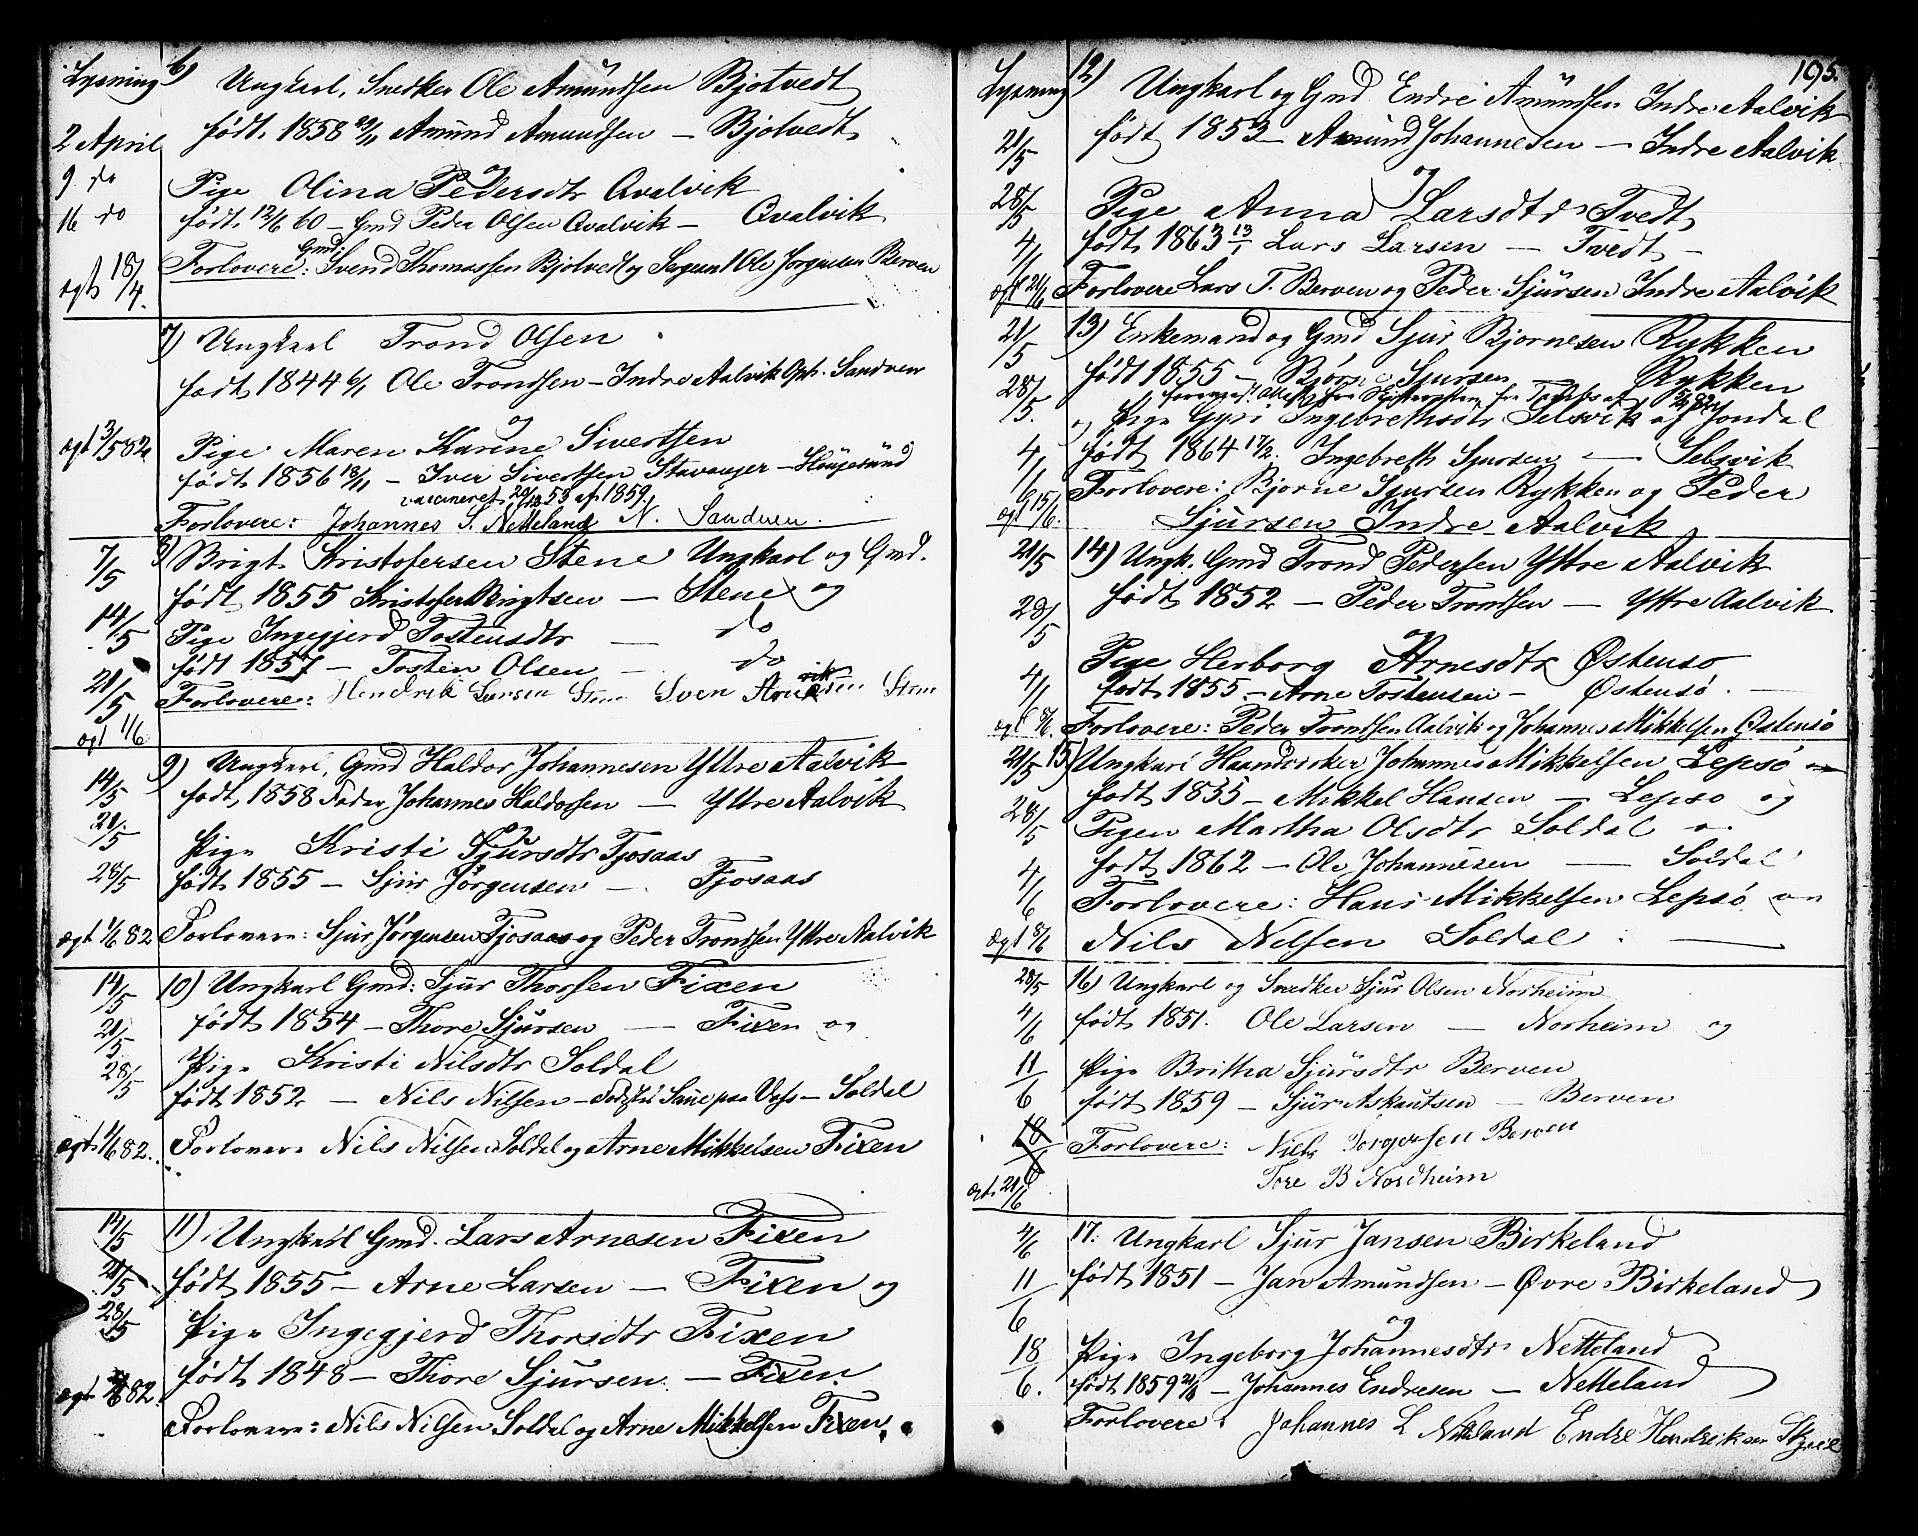 Lysning 6) Ungkarl, Snedker Ole Amundsen Bjotvedt
2 April født. 1858 Amund Amundsen — Bjolvedt
9 do og
Pige Olina Pedersdtr Qvalvik
16 do født. 12/6 60 — Gmd Peder Olsen Qvalvik — Qvalvik
Gmd.
ægt. 18/4. Forlovere: Svend Thomassen Bjolvedt og Ole Jørgensen Berven
7) Ungkarl Trond Olsen
født 1844 6/1 Ole Trondsen — Indre Aalvik Oph. Sandven
og
ægt 3/5 82 Pige Maren Karine Sivertsen
født 1856 18/11 — Iver Sivertsen Stavanger — Hougesund
vaccineret 20/12 58 af 1859
Forlovere: Johannes S. Netteland N. Sandven.
7/5 8) Brigt Kristofersen Stene Ungkarl og Gmd.
født 1855 Kristofer Brigtsen — Stene og
14/5 Pige Ingegjerd Tostensdtr — do
født 1857 — Tosten Olsen — do
21/5 Forlovere: Hendrik Larsen Stene Sven Stene
ægt 1/6
14/5 9) Ungkarl, Gmd Haldor Johannesen Yttre Aalvik
født 1858 Fader Johannes Haldorsen — Yttre Aalvik
21/5 og
Pige Kristi Sjursdtr Tjosaas
28/5 født 1855 — Sjur Jørgensen — Tjosaas
ægt 1/6 82 Forlovere: Sjur Jørgensen Tjosaas og Peder Trondsen Yttre Aalvik
14/5 10) Ungkarl Gmd: Sjur Thorsen Fixen
21/5 født 1854 — Thore Sjursen — Fixen og
28/5 Pige Kristi Nilsdtr Soldal
født 1852 — Nils Nilsen — paa Voss — Soldal
ægt. 1/6 82. Forlovere Nils Nilsen Soldal og Arne Mikkelsen Fixen
14/5 11) Ungkarl Gmd. Lars Arnesen Fixen
21/5 født 1855 — Arne Larsen — Fixen og
28/5 Pige Ingegjerd Thorsdtr Fixen
født 1848 — Thore Sjursen — Fixen
ægt 82. Forlovere: Nils Nilsen Soldal og Arne Mikkelsen Fixen.
195.
Lysning 12) Ungkarl og Gmd Endre Amundsen Indre Aalvik
21/5 født 1853 — Amund Johannesen — Indre Aalvik
og
28/5 Pige Anna Larsdtr Tvedt
4/6 født 1863 13/1 Lars Larsen — Tvedt —
ægt 21/6 Forlovere Lars T. Berven og Peder Sjursen Indre Aalvik
21/5 13) Enkemand og Gmd Sjur Bjornesen Rykken
født 1855 — Bjørne Sjursen — Rykken
28/5. og Pige Gyri Ingebrethsdtr Selsvik af Jondal
4/6 født 1864 17/2. Ingebreth Sjursen — Selsvik
Forlovere: Bjørne Sjursen Rykken og Peder
ægt 15/6. Sjursen Indre Aalvik
21/5 14) Ungk. Gmd Trond Pedersen Yttre Aalvik
28/5 født 1852 — Peder Trondsen — Yttre Aalvik
og
Pige Herborg Arnesdtr Østensø
4/6 født 1855 — Arne Tostensen — Østensø. —
ægt 8/6. Forlovere: Peder Trondsen Aalvik og Johannes Mikkelsen Østensø
21/5 15) Ungkarl Haandverker Johannes Mikkelsen Lepsø
28/5 født 1855 — Mikkel Hansen — Lepsø og
Pigen Martha Olsdtr Soldal
4/6 født 1862 — Ole Johannesen — Soldal
Forlovere: Hans Mikkelsen Lepsø og
ægt 8/6 Nils Nelsen Soldal —
28/5 16) Ungkarl og Snedker Sjur Olsen Norheim
4/6 født 1851. Ole Larsen — Norheim og
11/6 Pige Britha Sjursdtr Berven
født 1859 — Sjur Askautsen — Berven
18/6 Forlovere: Niels Torgersen Berven
ægt. 21/6 Tore B Nordheim
4/6 17. Ungkarl Sjur Jansen Birkeland
11/6 født 1851 — Jan Amundsen — Øvre Birkeland
og
18/6. Pige Ingeborg Johannesdtr Netteland
født 1859 — Johannes Endresen — Netteland
Forlovere: Johannes L Netteland Endre Hendriksen